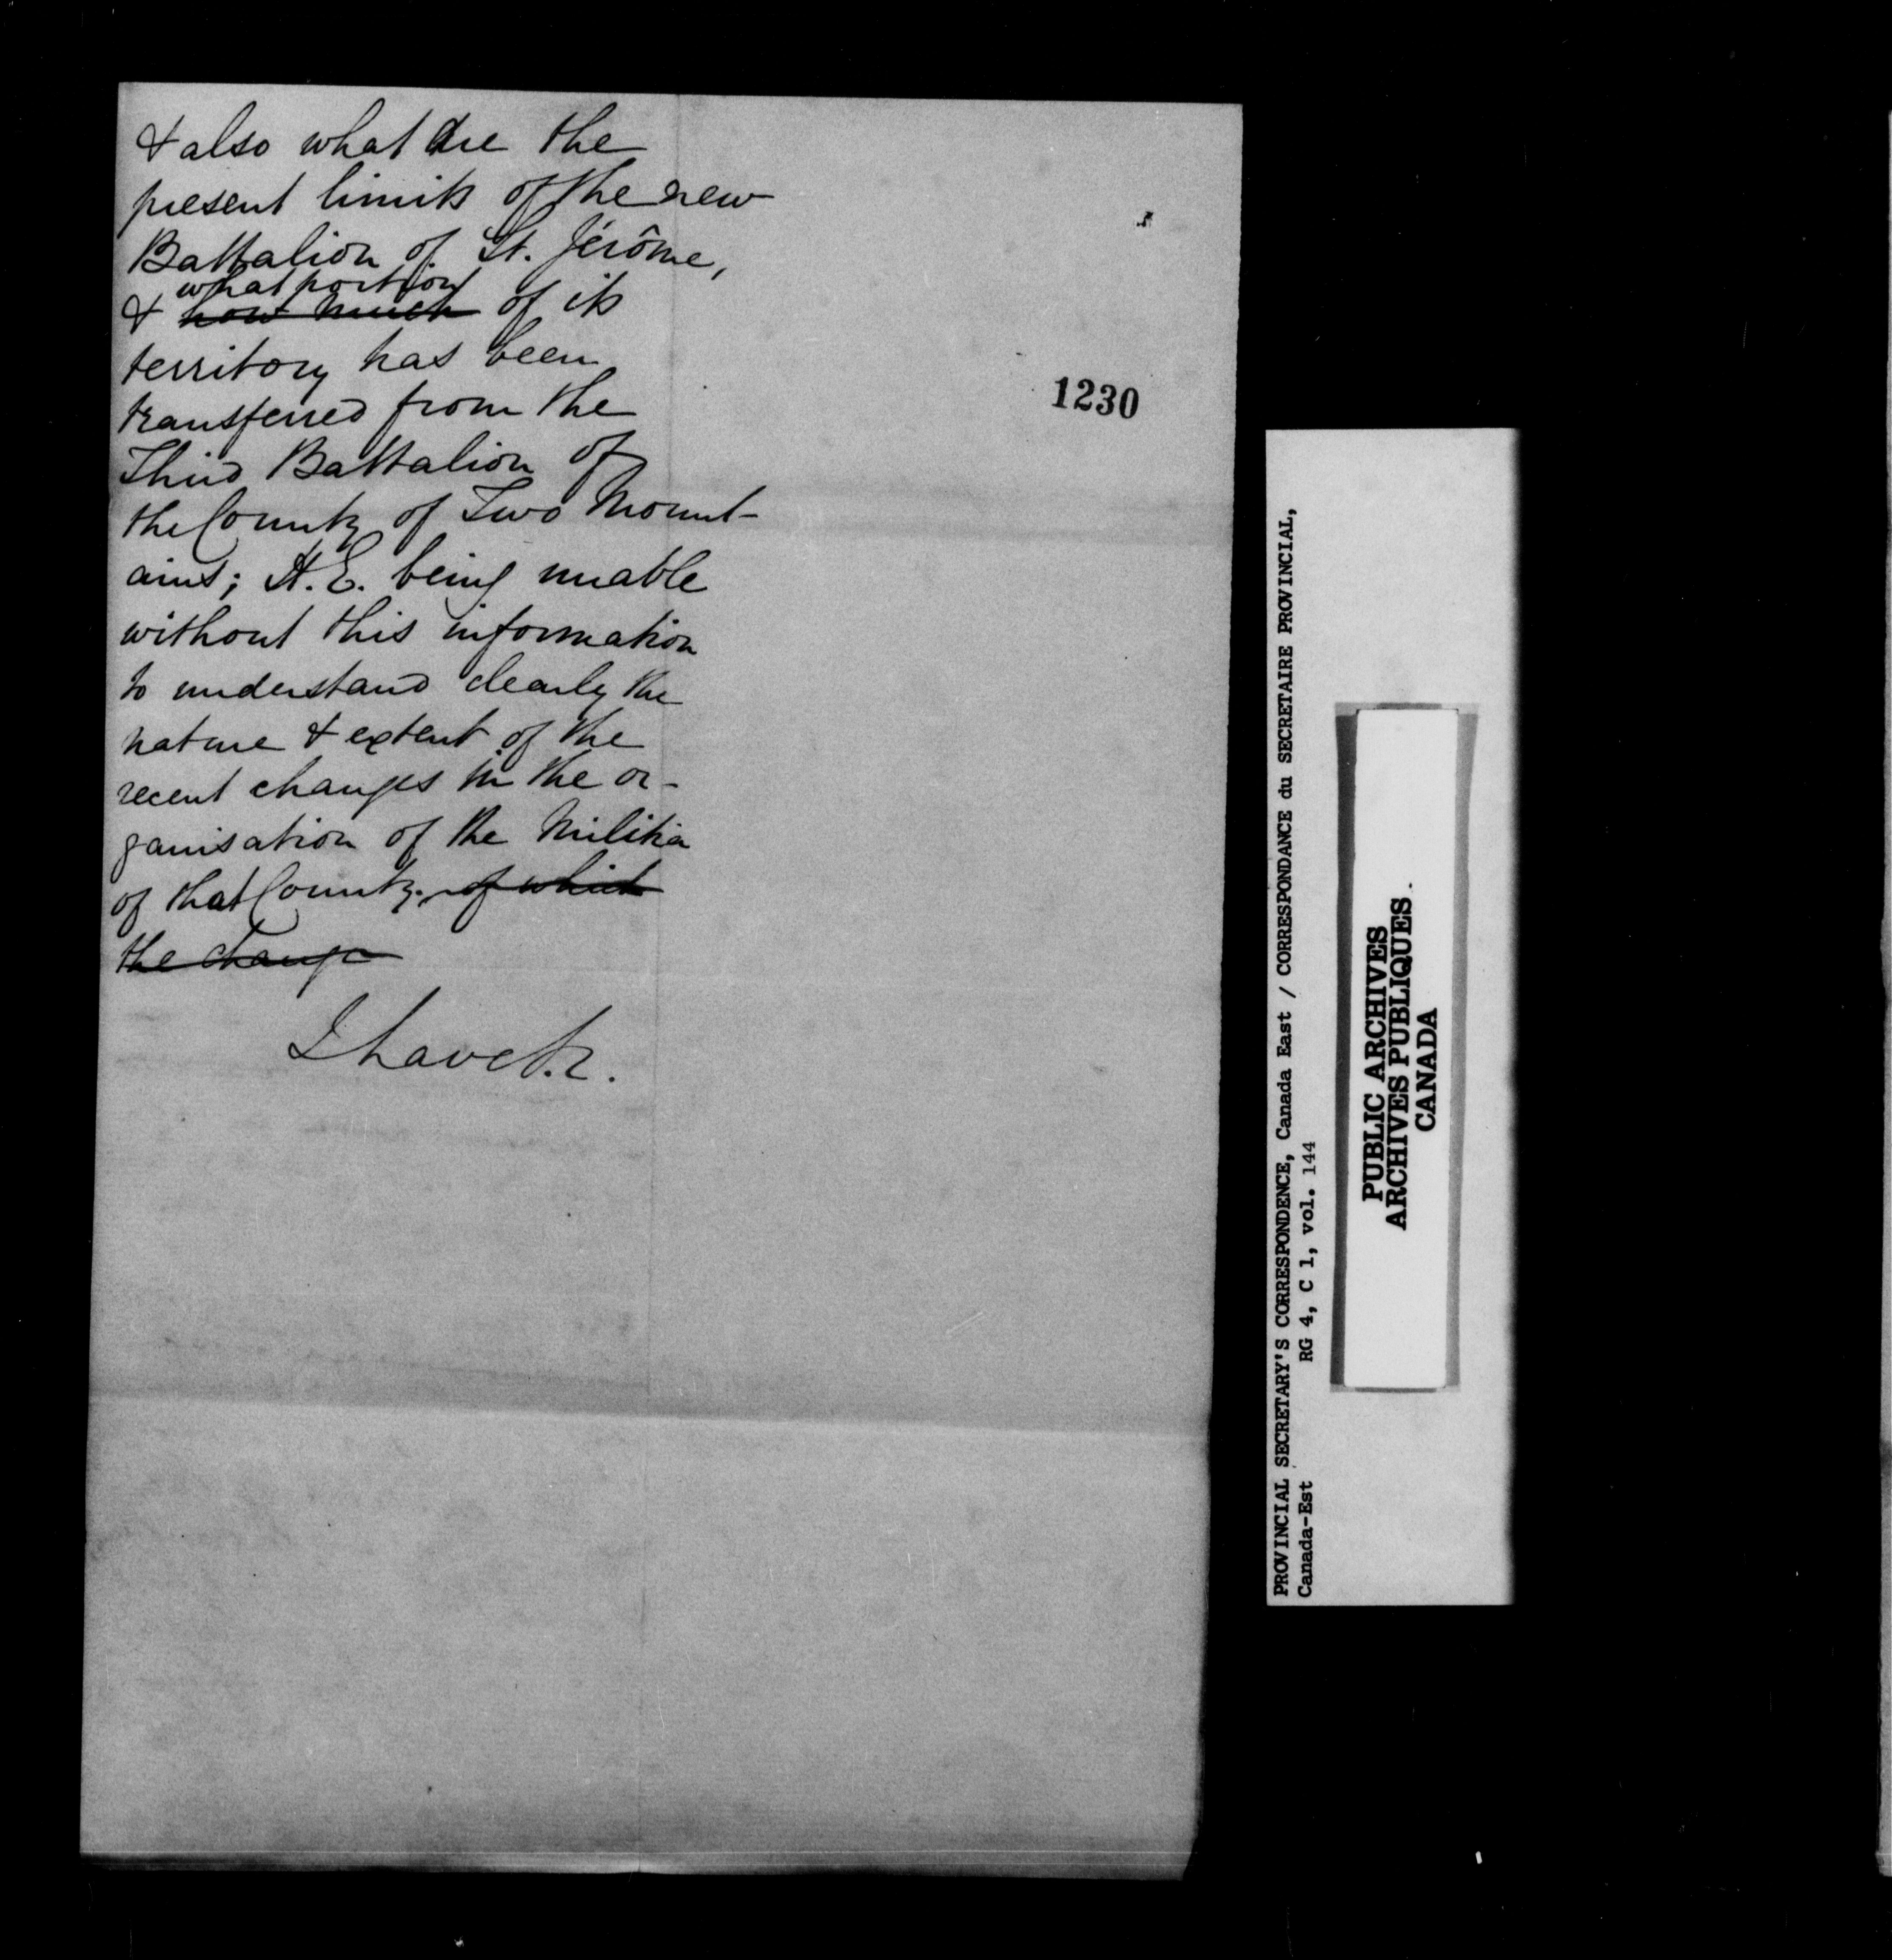 & also what are the
present limits of the new
Battalion of St. Jérôme,
what portion
& how much of its
territory has been
transferred from the
Third Battalion of
the County of Two Mount-
ains; H.E. being unable
without this information
to understand clearly the
nature & extent of the
recent changes in the or-
ganisation of the Militia
of that County. of which
the change
I have &c.
1230
PROVINCIAL SECRETARY'S CORRESPONDENCE, Canada East / CORRESPONDANCE du SECRETAIRE PROVINCIAL,
Canada-Est RG 4, C 1, vol. 144
PUBLIC ARCHIVES
ARCHIVES PUBLIQUES
CANADA